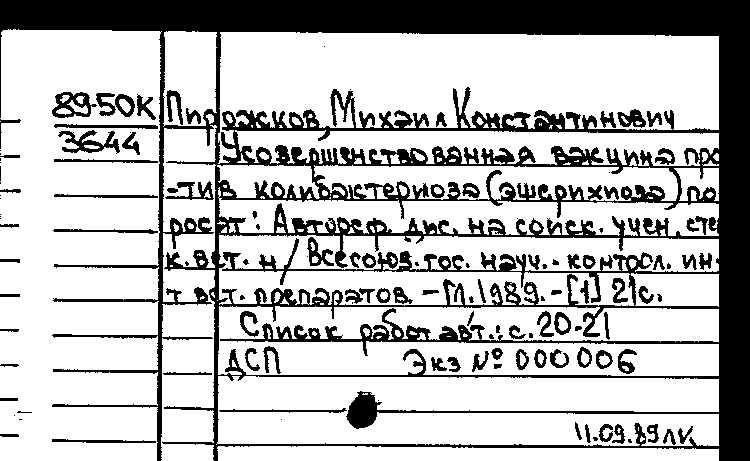 89-50К Пирожков, Михаил Константинович
3644 Усовершенствованная вакцина про
-тив колибактериоза (эшерихиоза) по
росят: Автореф. дис. на соиск. учен. сте
к. вет. н / Всесоюз. гос. науч.- контрол. ин-
т вет. препаратов. - М. 1989. - [1] 21с.
Список работ авт.: с. 20-21
ДСП Экз № 000006
11.09.89 ЛК